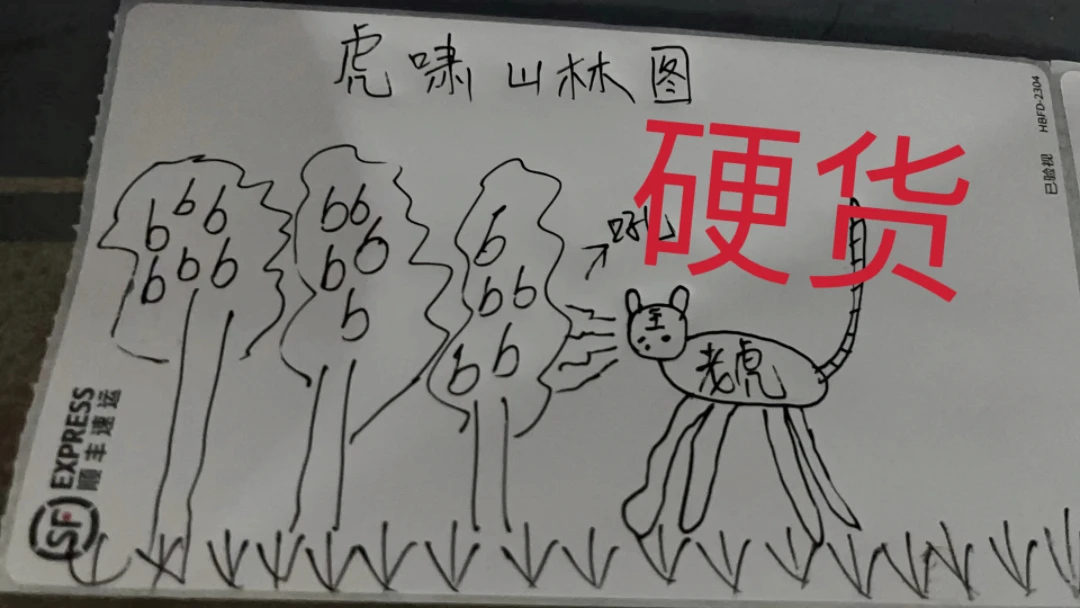 虎啸山林图
硬货
HBFD-2304
已验视
b b b
b b b b
b b
b b
b
b
b b
b b
吼
王
老虎
SF EXPRESS
顺丰速运